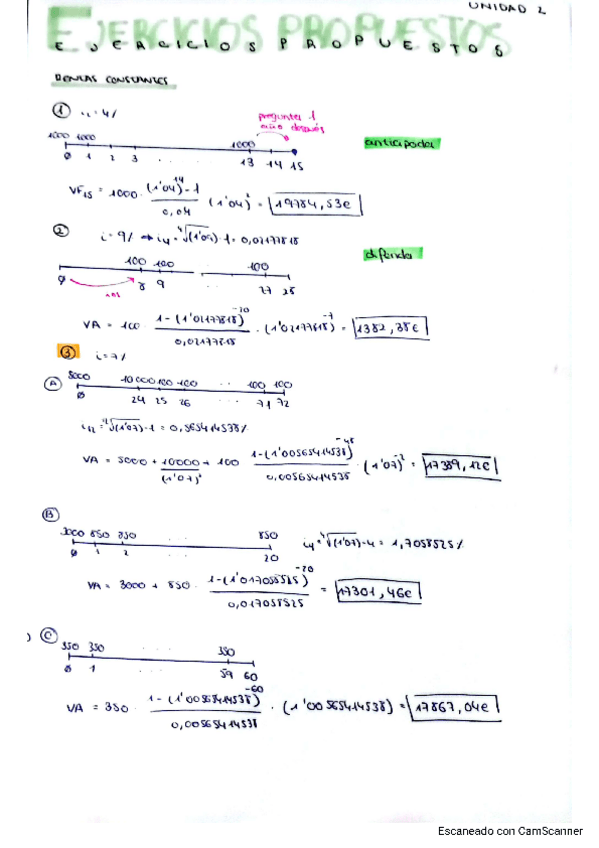 UNIDAD 2
EJERCICIOS PROPUESTOS
EJERCICIOS PROPUESTOS
RENTAS CONSTANTES
1 i = 4%
pregunta 1 año después
1000 1000 1000 anticipada
0 1 2 3 ... 13 14 15
VF15 = 1000 · (1'04)^14 - 1 / 0,04 · (1'04)^2 = 19784,53€
2 i = 9% → i4 = ⁴√(1'09) - 1 = 0,02177818
100 100 100 diferida
0 8 9 ... 27 28
VA = 100 · 1 - (1'02177818)^-20 / 0,02177818 · (1'02177818)^-7 = 1382,38€
3 i = 7%
A 5000 10000 100 100 ... 100 100
0 24 25 26 ... 71 72
i12 = ¹²√(1'07) - 1 = 0,565414538%
VA = 5000 + 10000 / (1'07)² + 100 1 - (1'00565414538)^-48 / 0,00565414538 · (1'07)^-2 = 17389,12€
B
3000 850 850 ... 850 i4 = ⁴√(1'07) - 1 = 1,7058525%
0 1 2 20
VA = 3000 + 850 · 1 - (1'017058525)^-20 / 0,017058525 = 17301,46€
C
350 350 ... 350
0 1 ... 59 60
VA = 350 · 1 - (1'00565414538)^-60 / 0,00565414538 · (1'00565414538) = 17867,04€
Escaneado con CamScanner